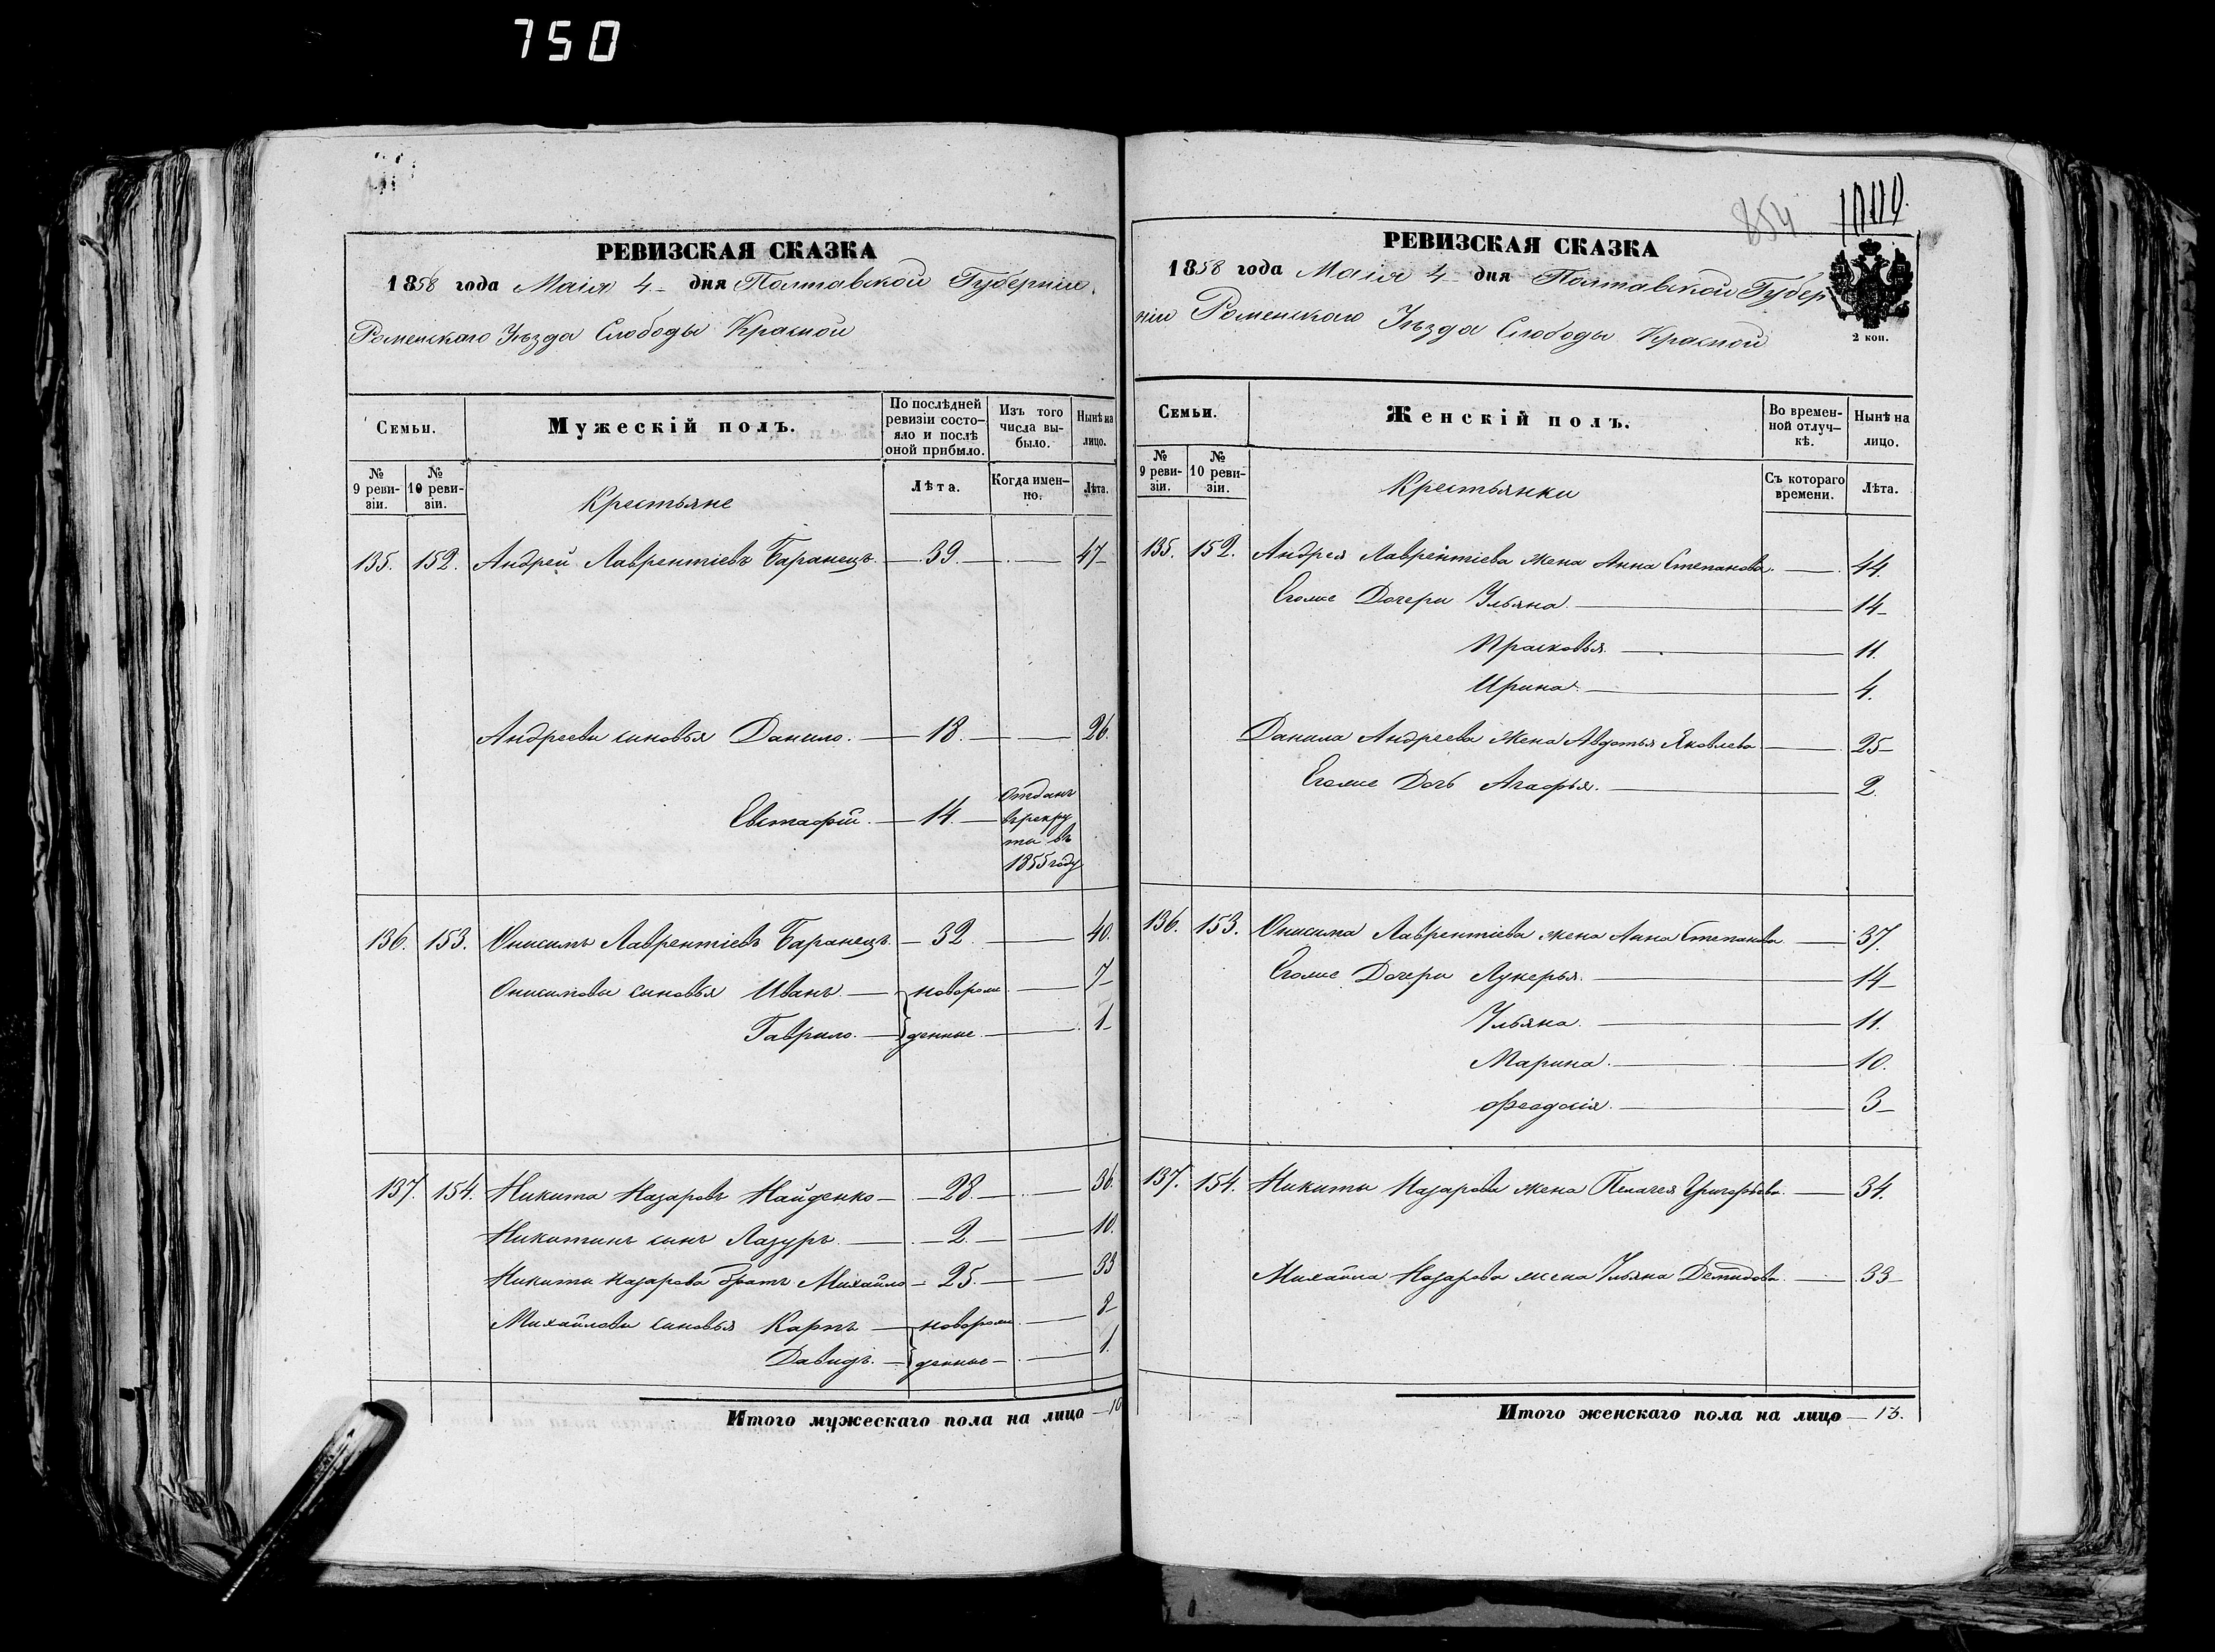 750
РЕВИЗСКАЯ СКАЗКА
1858 года Маія 4 дня Полтавской Губерніи
Роменскаго Уѣзда Слободы Красной
Семьи.
Мужескій полъ.
По послѣдней ревизіи состо-
яло и послѣ оной прибыло.
Изъ того числа вы-
было.
Нынѣ на лицо.
№ 9 реви-
зіи.
№ 10 реви-
зіи.
Крестьяне
Лѣта.
Когда имен-
но.
Лѣта.
135. 152. Андрей Лаврентіевъ Баранецъ. 39. 47
Андреевы сыновья Данило. 18. 26.
Евстафій. 14.
Отданъ
въ рекру
ты въ
1855 году
136. 153. Онисимъ Лаврентіевъ Баранецъ. 32. 40.
Онисимовы сыновья Иванъ новорож 7
Гаврило. денные 1
137. 154. Никита Назаровъ Найденко 28. 36.
Никитинъ сынъ Лазурь 2. 10.
Никиты Назарова братъ Михайло 25. 33
Михайловы сыновья Карпъ новорож 8
Давидъ. денные 1.
Итого мужескаго пола на лицо 10
854
РЕВИЗСКАЯ СКАЗКА
1858 года Маія 4 дня Полтавской Губер
ніи Роменскаго Уѣзда Слободы Красной
2 коп.
Семьи.
Женскій полъ.
Во времен-
ной отлуч-
кѣ.
Нынѣ на лицо.
№ 9 реви-
зіи.
№ 10 реви-
зіи.
Крестьянки
Съ котораго времени.
Лѣта.
135. 152. Андрея Лаврентіева жена Анна Степанова. 44.
Егоже Дочери Ульяна. 14
Прасковья. 11.
Ирина. 4.
Данила Андреева жена Авдотья Яковлева 25
Егоже Дочь Агафья. 2.
136. 153. Онисима Лаврентіева жена Анна Степанова 37.
Егоже Дочери Лукерья. 14
Ульяна. 11.
Марина. 10.
Феодосія. 3
137. 154. Никиты Назарова жена Пелагея Григорьева. 34.
Михайла Назарова жена Ульяна Демидова. 33
Итого женскаго пола на лицо 13.